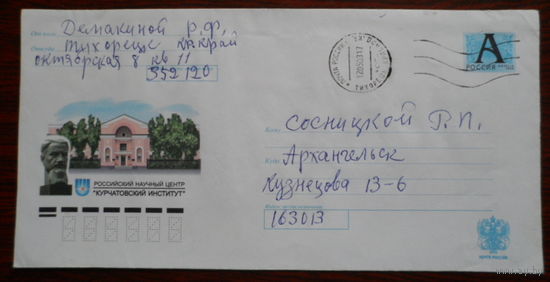 От кого Демакиной Р.Ф.
Откуда Тихорецк Кр.край
октябрская 8 кв 11
352120
РОССИЙСКИЙ НАУЧНЫЙ ЦЕНТР
"КУРЧАТОВСКИЙ ИНСТИТУТ"
А
РОССИЯ
Кому Сосницкой Г.П.
Куда Архангельск
Кузнецова 13-6
163013
ПОЧТА РОССИИ